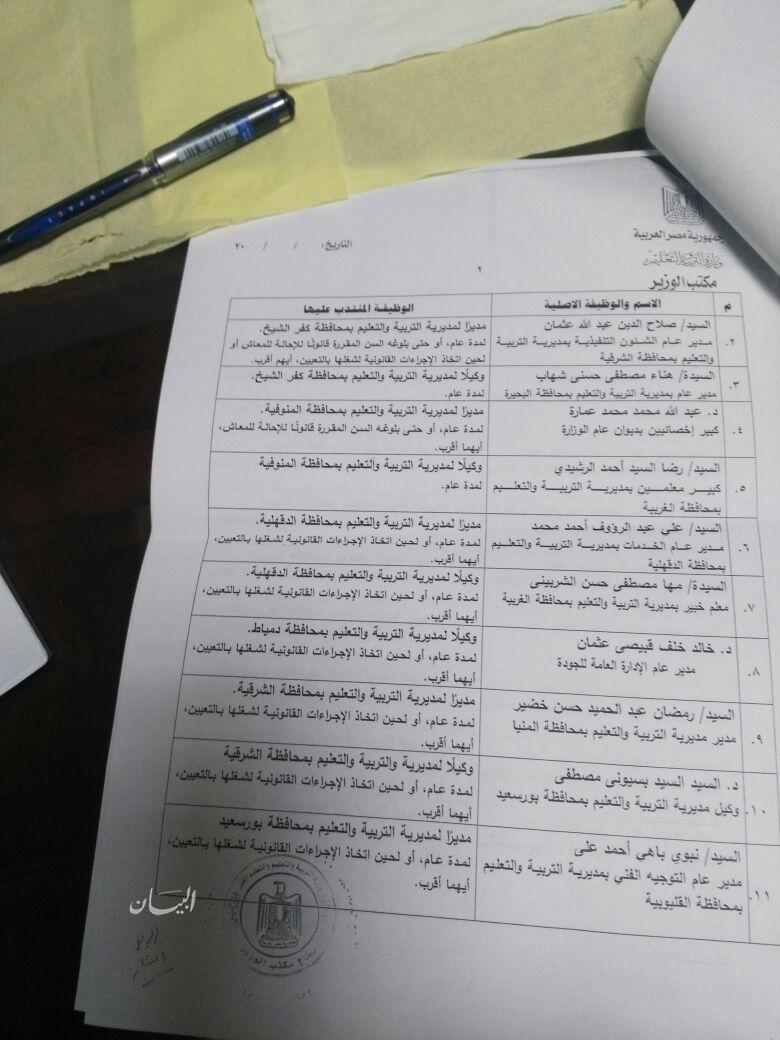 IMPACT
جمهورية مصر العربية
وزارة التربية والتعليم
مكتب الوزير
التاريخ: / / ٢٠
٢
م
الاسم والوظيفة الاصلية
الوظيفة المنتدب عليها
٢.
السيد/ صلاح الدين عبد الله عثمان
مدير عام الشئون التنفيذية بمديرية التربية
والتعليم بمحافظة الشرقية
مديرًا لمديرية التربية والتعليم بمحافظة كفر الشيخ.
لمدة عام، أو حتى بلوغه السن المقررة قانونًا للإحالة للمعاش أو
لحين اتخاذ الإجراءات القانونية لشغلها بالتعيين، أيهم أقرب.
٣.
السيدة/ هناء مصطفى حسنى شهاب
مدير عام بمديرية التربية والتعليم بمحافظة البحيرة
وكيلًا لمديرية التربية والتعليم بمحافظة كفر الشيخ.
لمدة عام.
٤.
د. عبد الله محمد محمد عمارة
كبير إخصائيين بديوان عام الوزارة
مديرًا لمديرية التربية والتعليم بمحافظة المنوفية.
لمدة عام، أو حتى بلوغه السن المقررة قانونًا للإحالة للمعاش،
أيهما أقرب.
٥.
السيد/ رضا السيد أحمد الرشيدي
كبير معلمين بمديرية التربية والتعليم
بمحافظة الغربية
وكيلًا لمديرية التربية والتعليم بمحافظة المنوفية
لمدة عام.
٦.
السيد/ على عبد الرؤوف أحمد محمد
مدير عام الخدمات بمديرية التربية والتعليم
بمحافظة الدقهلية
مديرًا لمديرية التربية والتعليم بمحافظة الدقهلية.
لمدة عام، أو لحين اتخاذ الإجراءات القانونية لشغلها بالتعيين،
أيهما أقرب.
٧.
السيدة/ مها مصطفى حسن الشربينى
معلم خبير بمديرية التربية والتعليم بمحافظة الغربية
وكيلًا لمديرية التربية والتعليم بمحافظة الدقهلية.
لمدة عام، أو لحين اتخاذ الإجراءات القانونية لشغلها بالتعيين،
أيهما أقرب.
٨.
د. خالد خلف قبيصى عثمان
مدير عام الإدارة العامة للجودة
وكيلًا لمديرية التربية والتعليم بمحافظة دمياط.
لمدة عام، أو لحين اتخاذ الإجراءات القانونية لشغلها بالتعيين،
أيهما أقرب.
٩.
السيد/ رمضان عبد الحميد حسن خضير
مدير مديرية التربية والتعليم بمحافظة المنيا
مديرًا لمديرية التربية والتعليم بمحافظة الشرقية.
لمدة عام، أو لحين اتخاذ الإجراءات القانونية لشغلها بالتعيين،
أيهما أقرب.
١٠.
د. السيد السيد بسيونى مصطفى
وكيل مديرية التربية والتعليم بمحافظة بورسعيد
وكيلًا لمديرية التربية والتعليم بمحافظة الشرقية
لمدة عام، أو لحين اتخاذ الإجراءات القانونية لشغلها بالتعيين،
أيهما أقرب.
١١.
السيد/ نبوي باهي أحمد على
مدير عام التوجيه الفني بمديرية التربية والتعليم
بمحافظة القليوبية
مديرًا لمديرية التربية والتعليم بمحافظة بورسعيد
لمدة عام، أو لحين اتخاذ الإجراءات القانونية لشغلها بالتعيين،
أيهما أقرب.
البيان
مكتب الوزير